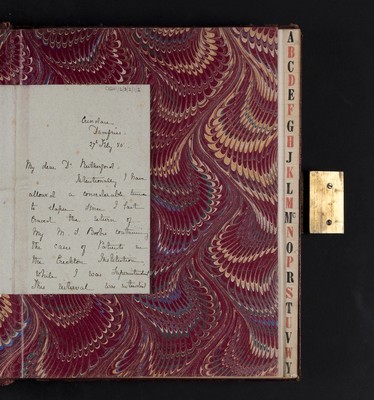 Dumfries.
27 July 80
My dear Dr Rutherford.
Intentionally I have
allowed a considerable time
to elapse since I last
the return of
My M S Books containing
the cases of Patients in
the Crichton Institution
while I was Superintendent
This interval was
A
B
C
D
E
F
G
H
J
K
L
M
Mc
N
O
P
R
S
T
U
V
W
Y